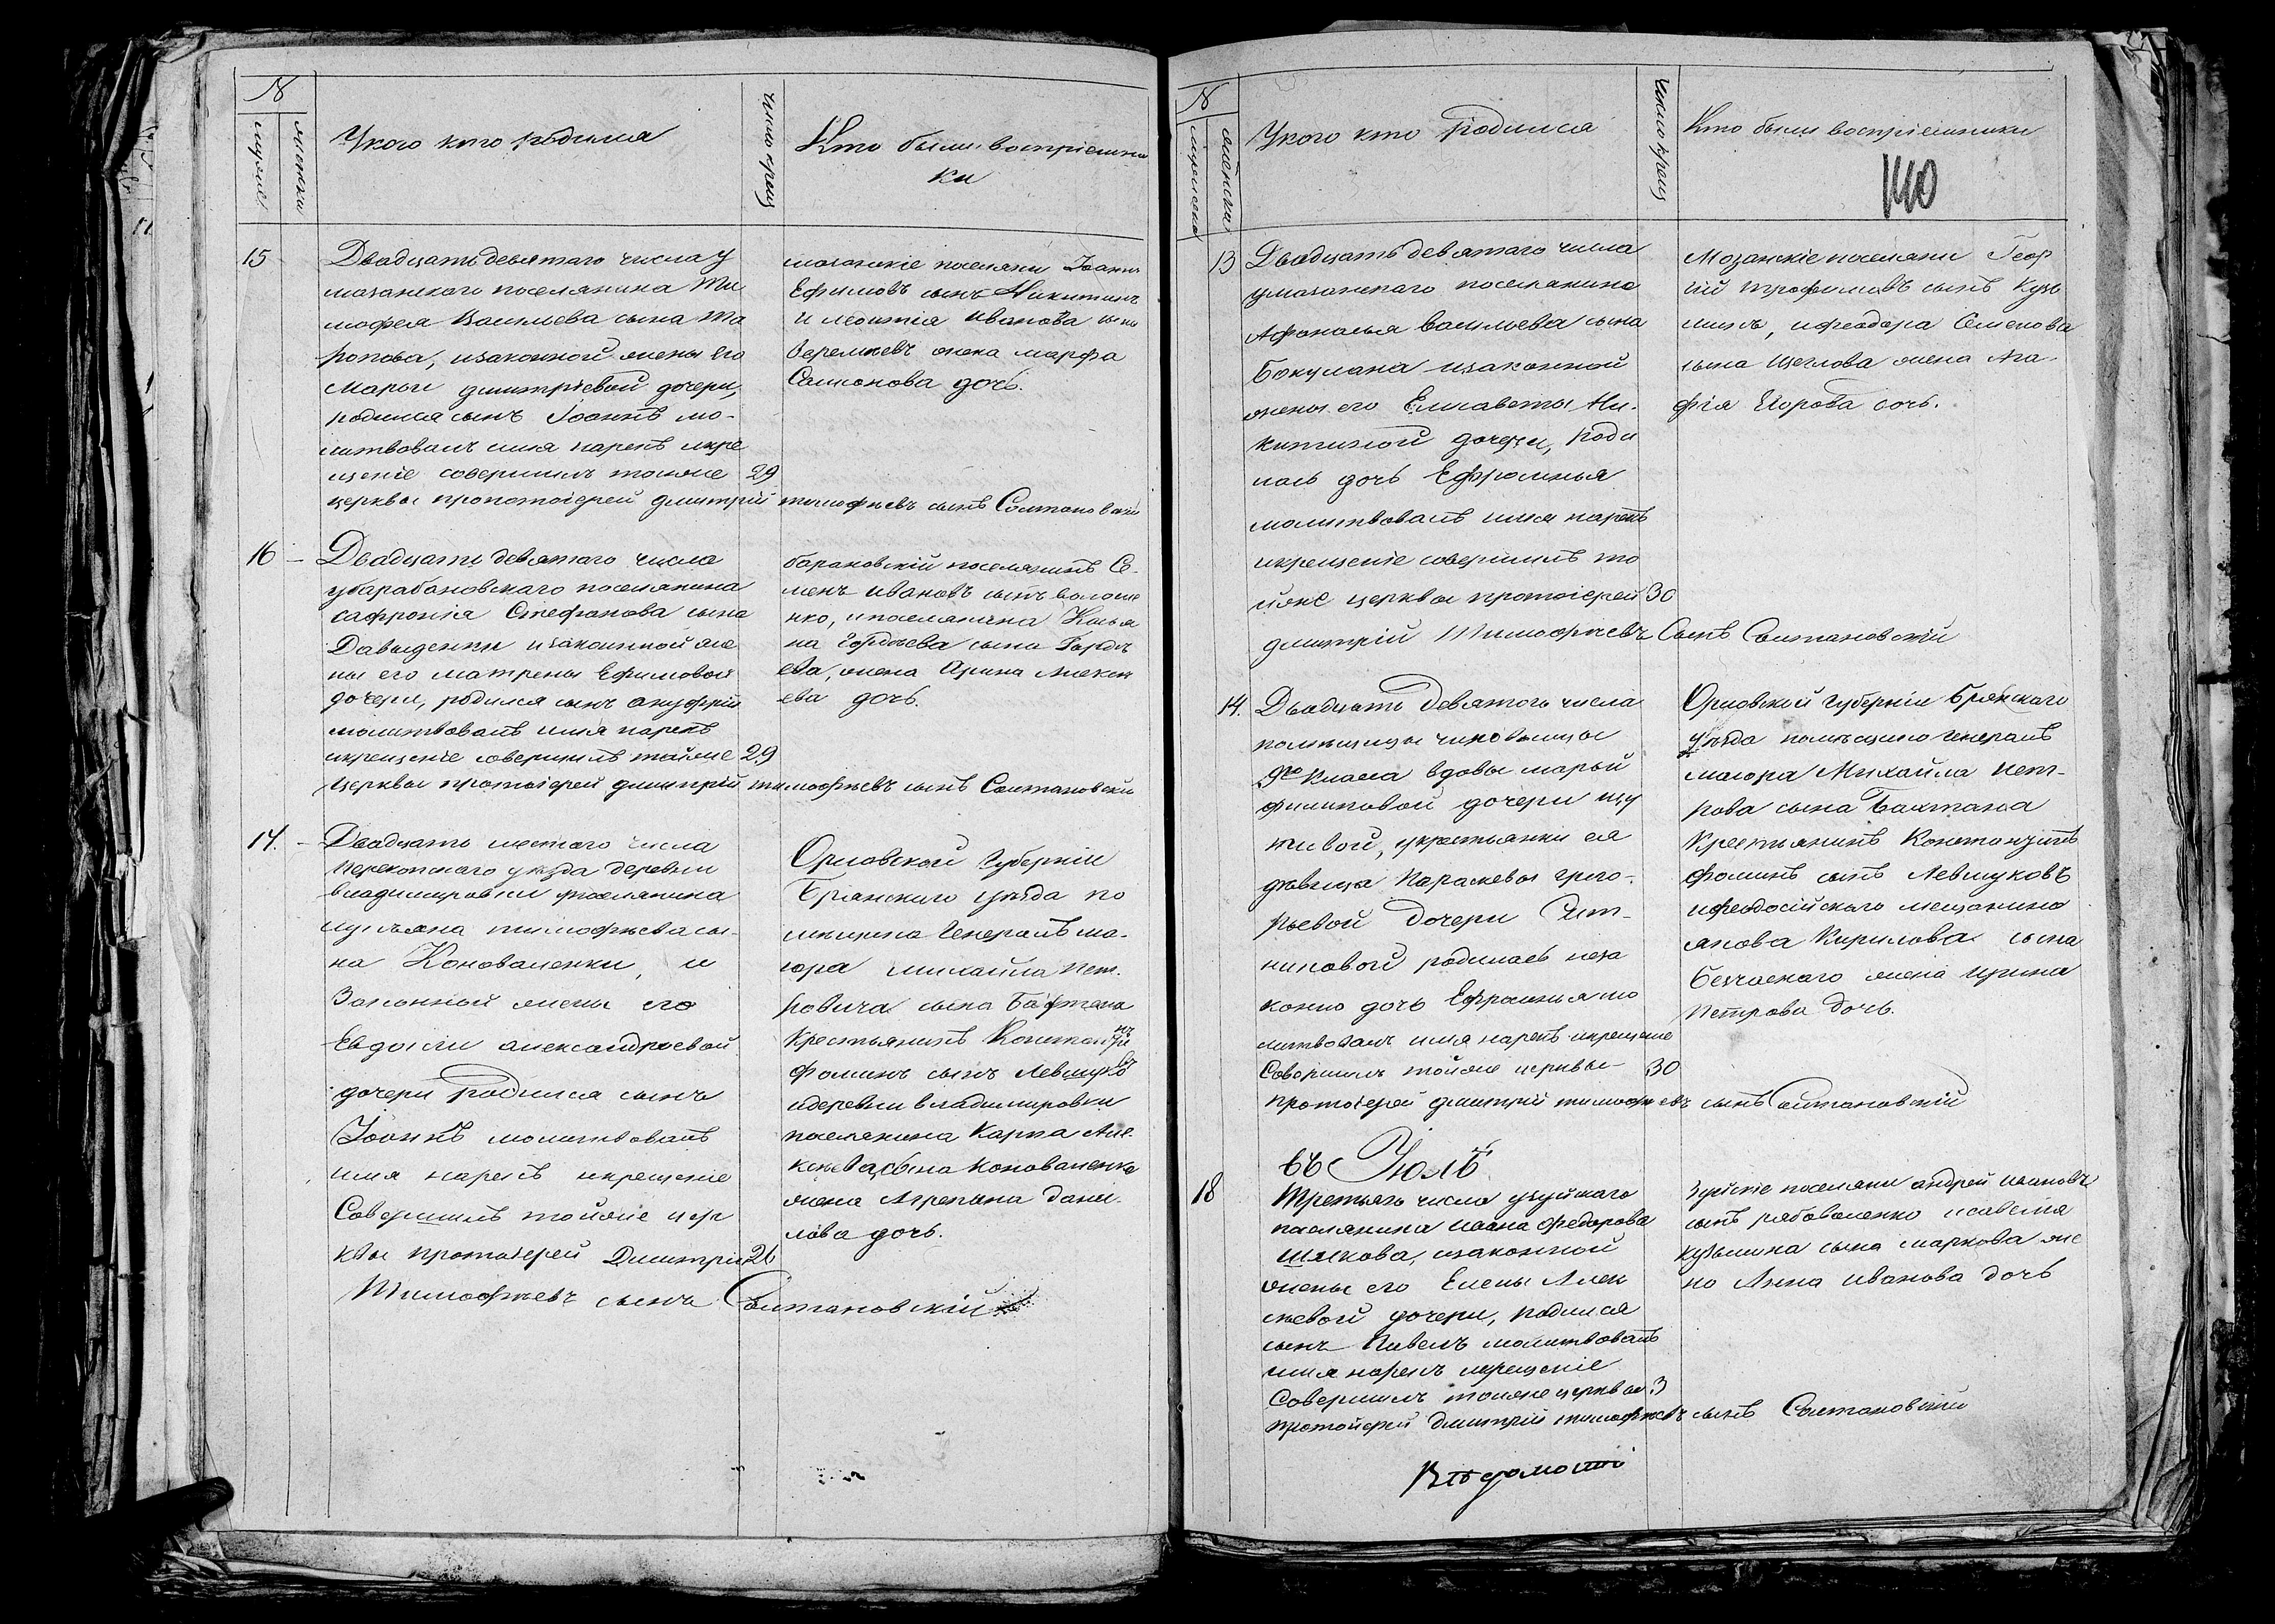 №
мужеск
женски
У кого кто родился
число крещ
Кто были воспріемни
ки
15
Двадцать девятаго числа у
мазанского поселянина Ти
мофея Васильева сына
и законной жены его
Марьи димитріевой дочери,
родился сынъ Іоаннъ мо-
литвовалъ имя нарекъ икре
щеніе совершилъ тойже 29
церквы протоіерей димитрій тимофѣевъ сынъ Солтановскій
мазанскіе поселяни Іоаннъ
Ефимовъ сынъ Никитинъ
И леонтія Иванова сына
Веремѣевъ жена марфа
Самсонова дочь.
16 —
Двадцать девятаго числа
убарабановскаго поселянина
сафронія Стефанова сына
Давыденки изаконной же
ны его матрены Ефимовой
дочери, родился сынъ онуфрій
молитвовалъ имя нарекъ
икрещеніе совершилъ тойже 29
церквы протоіерей димитрій тимофѣевъ сынъ Солтановскій
Се-
менъ Ивановъ сынъ
нко, ипоселянина
на Гордѣева сына Гордѣ
ева, жена Арина Алексѣ
ева дочь.
14. —
Двадцать шестаго числа
Перекопскаго уезда деревни
владимировки поселянина
лукъяна тимофѣева сы-
на Коноваленки, и
Законной жены его
Евдокіи александровой
дочери родился сынъ
Іоаннъ молитвовалъ
имя нарекъ икрещеніе
Совершилъ тойже цер
квы протоіерей Димитрій 26
Тимофѣевъ сынъ Солтановскій
Орловской Губерніи
Брянскаго уѣзда по
мѣщика Генералъ ма-
іора михайла Пет-
ровича сына
Крестьянинъ Константинъ
Фоминъ сынъ Левшуковъ
идеревни владимировки
поселянина Карпа Але-
ксѣева сына Коноваленка
жена Агрепина дани-
лова дочь.
№
мужеска
женски
У кого кто Родился
число крещ
Кто были воспріемники
140
13
Двадцать девятаго числа
умазанскаго поселянина
Афонасья Васильева сына
Бокулана изаконной
жены его Елисаветы Ни-
китиной дочери, роди
лась дочь Ефросинья
молитвовалъ имя нарекъ
икрещеніе совершилъ то
йже церквы протоіерей 30
димитрій Тимофѣевъ Сынъ Солтановскій
Мазанскіе поселяни Геор
гій трофимовъ сынъ Кузь
минъ, ифеодора Семенова
сына Щеглова жена Ага-
фія Егорова дочь.
14.
Двадцать девятого числа
помѣщицы чиновницы
9го класса вдовы марьи
филиповой дочери
укрестьянки ея
дѣвица Параскевы григо-
рьевой дочери
родилась неза
конно дочь Ефросинья мо
литвовалъ имя нарекъ икрещеніе
Совершилъ тойже церквы 30
протоіерей димитрій тимофѣевъ сынъ Солтановскій
Орловской Губерніи Брянскаго
уѣзда помѣщика Генералъ
маіора Михайла Пет-
рова сына
Крестьянинъ Константинъ
Фоминъ сынъ Левшуковъ
ифеодосійскаго мещанина
якова Кирилова сына
жена ирина
Петрова дочь.
въ Іюлѣ
18
Третьего числа узуйскаго
паселянина ивана федорова
Шилкова, изаконной
жены его Елены Алек
сѣевой дочери, родился
сынъ Павелъ молитвовалъ
имя нарекъ икрещеніе
Совершилъ тойже церквы 3
протоіерей димитрій тимофѣевъ сынъ Солтановскій
Зуйскіе поселяни андрей ивановъ
сынъ рябоваленко исавелія
кузьмина сына маркова же
на Анна иванова дочь
Вѣдомости